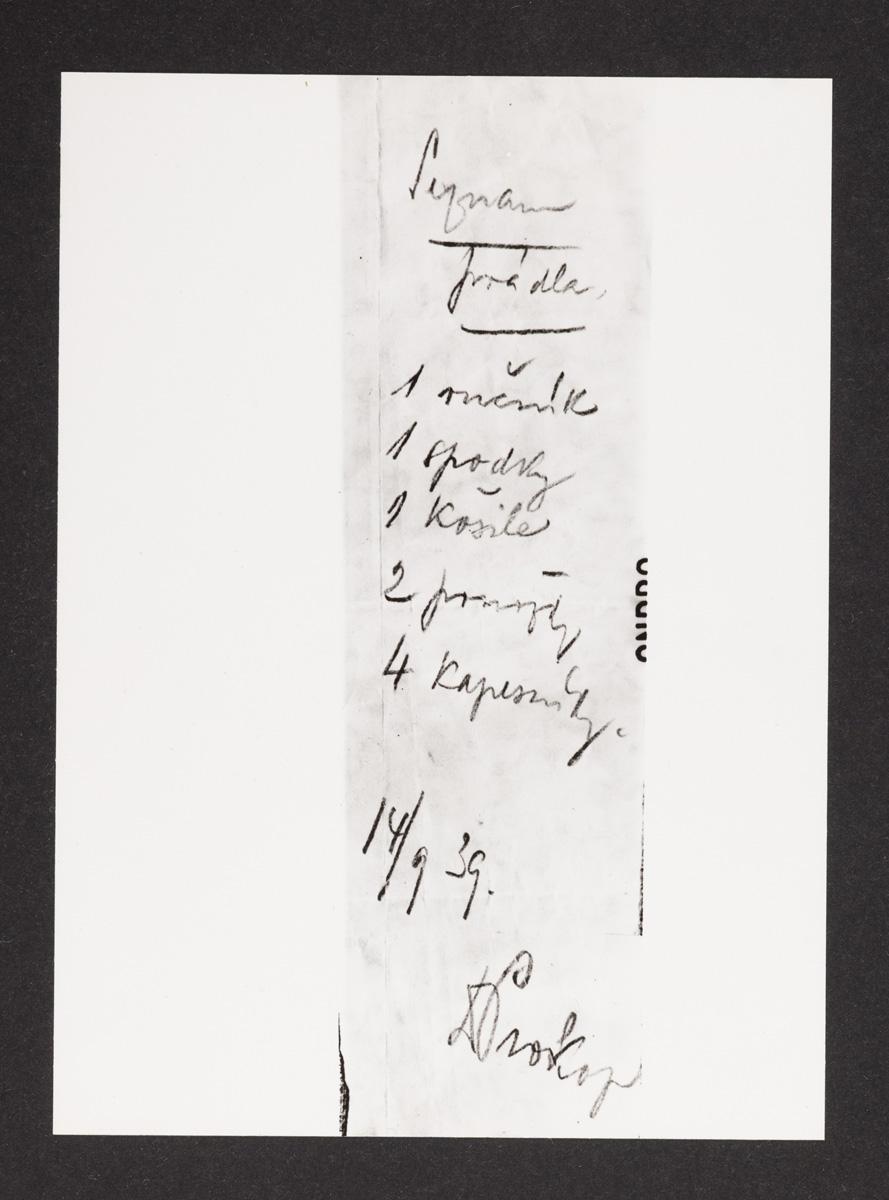 Seznam
prádla,
1 ručník
1 spodky
1 košile
2
4 kapesníky.
14/9 39.
Prokop